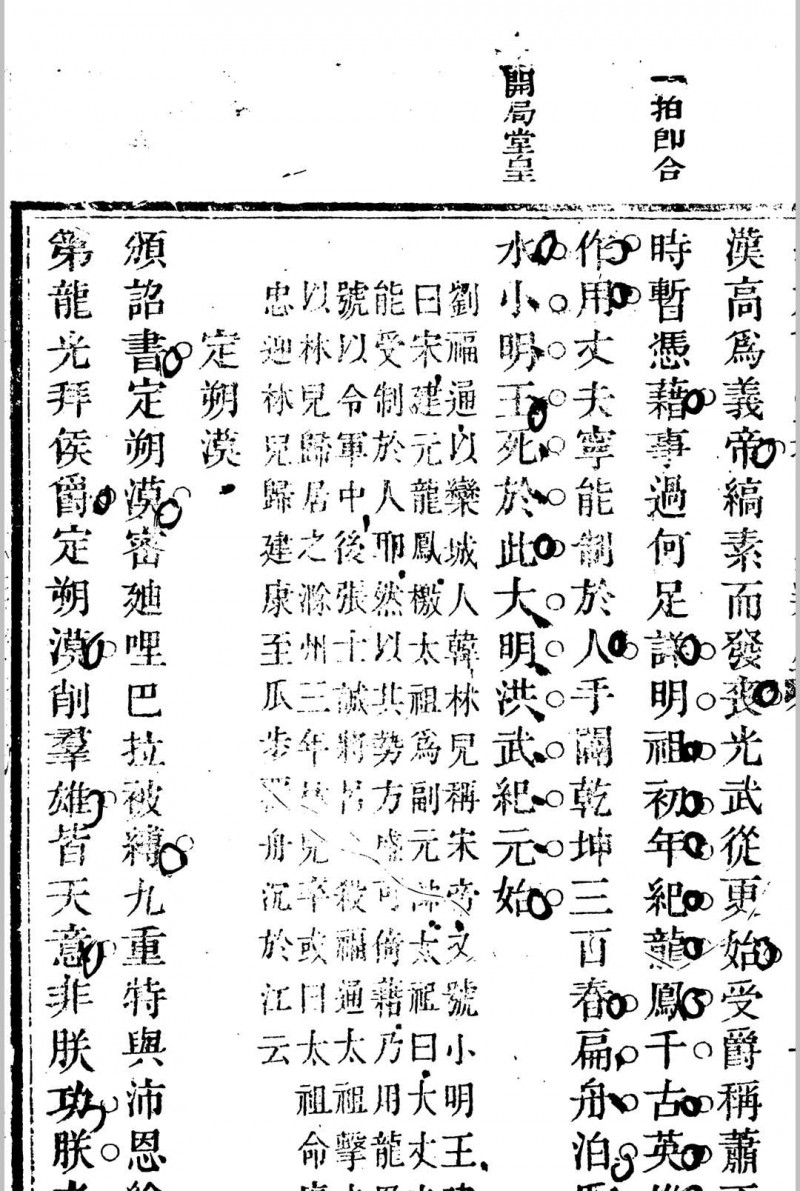 一拍即合
開局堂皇
漢高爲義帝縞素而發喪光武從更始受爵稱蕭
時暫憑藉事過何足諱明祖初年紀龍鳳千古英
作用丈夫寧能制於人手闢乾坤三百春扁舟泊
水小明王死於此大明洪武紀元始
劉福通以欒城人韓林兒稱宋帝又號小明王建
曰宋建元龍鳳檄太祖爲副元帥太祖曰大丈夫
能受制於人耶然以其勢方盛可倚藉乃用龍鳳
號以令軍中後張士誠將呂殺福通太祖擊
以林兒歸居之滁州三年林兒卒或曰太祖命廖
忠迎林兒歸建康至瓜步舟沉於江云
定朔漠
頒詔書定朔漠密廸哩巴拉被縛九重特與沛恩
第龍光拜侯爵定朔漠削羣雄皆天意非朕功朕